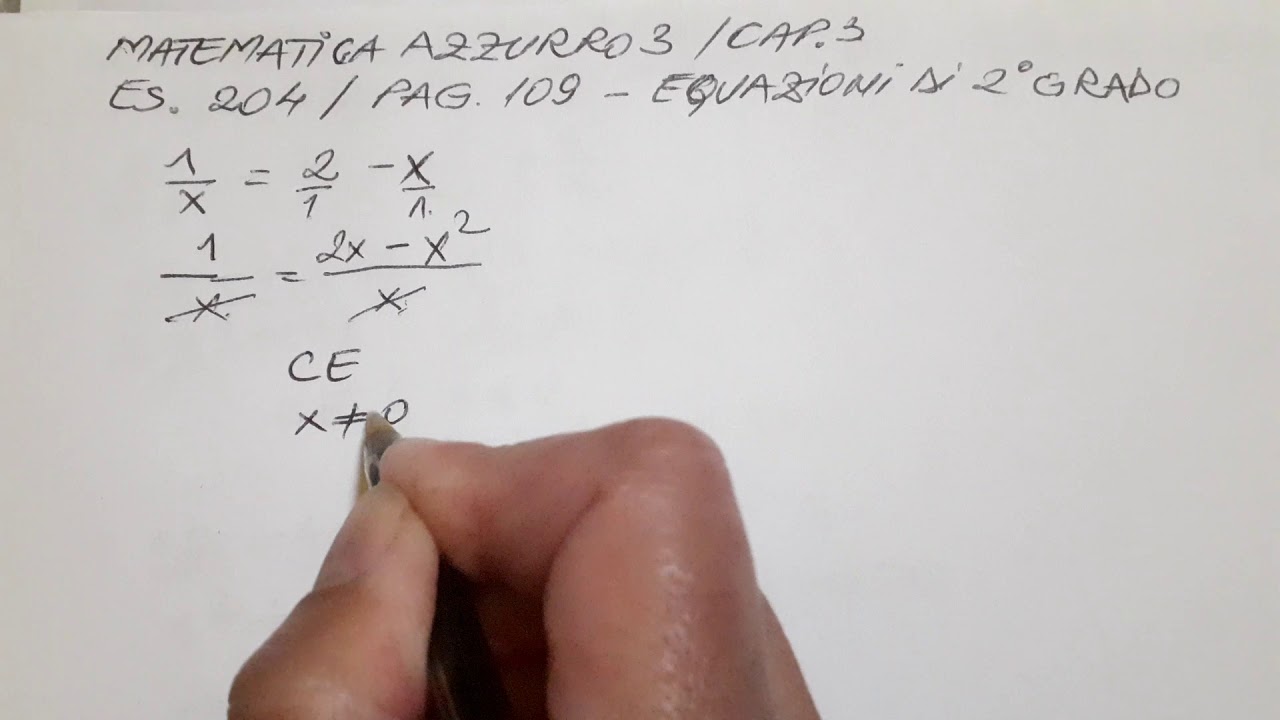 MATEMATICA AZZURRO 3 / CAP. 3
ES. 204 / PAG. 109 - EQUAZIONI DI 2° GRADO
1/x = 2/1 - x/1
1/x = 2x - x²/x
CE
x ≠ 0